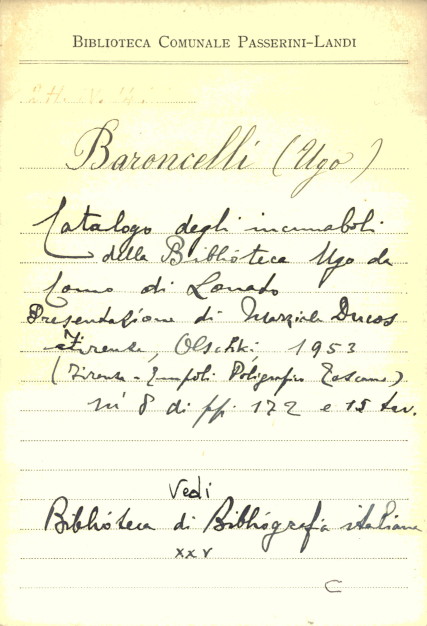 BIBLIOTECA COMUNALE PASSERINI-LANDI
Baroncelli (Ugo)
Catalogo degli incunaboli
della Biblioteca Ugo da
Como di Lonato
Presentazione di Marziale Ducos
Firenze, Olschki, 1953
(Firenze - Empoli Poligrafico Toscano)
in 8 di pp. 172 e 15 tav.
Vedi
Biblioteca di Bibliografia italiana
xxv
C